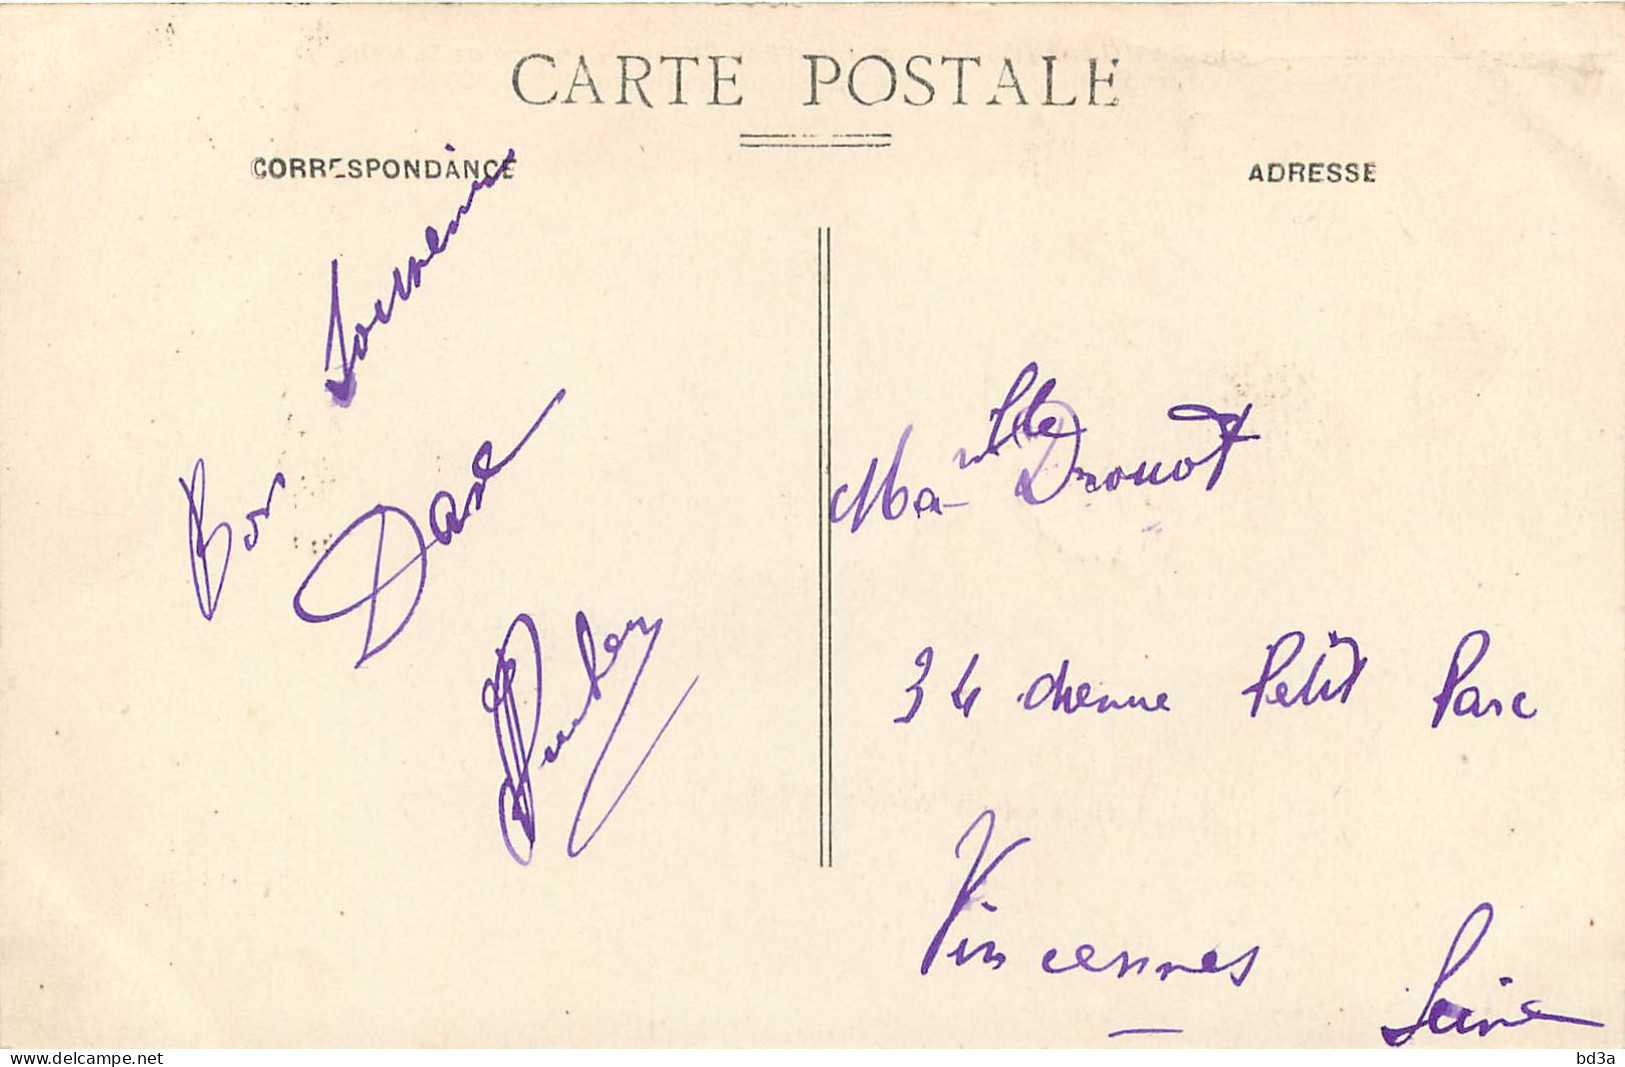 CARTE POSTALE
CORRESPONDANCE
ADRESSE
Bon Souvenir
Mlle Drouot
34 avenue Petit Parc
Vincennes
Seine
www.delcampe.net
bd3a